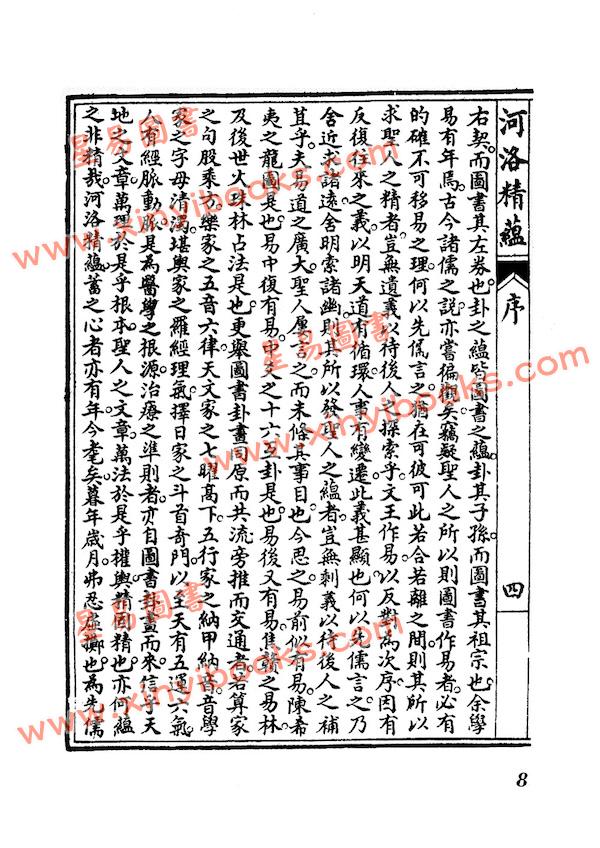 河洛精蘊 序 四
右契。而圖書其左券也。卦之蘊皆圖書之蘊。卦其子孫。而圖書其祖宗也。余學
易有年焉。古今諸儒之說。亦嘗徧觀矣。竊疑聖人之所以則圖書作易者。必有
的確不可移易之理。何以先儒言之。猶在可彼可此。若合若離之間。則其所以
求聖人之精者。豈無遺義以待後人之探索乎。文王作易。以反對為次序。因有
反復往來之義。以明天道有循環。人事有變遷。此義甚顯也。何以先儒言之。乃
舍近求諸遠。舍明索諸幽。則其所以發聖人之蘊者。豈無剩義以待後人之補
苴乎。夫易道之廣大。聖人屢言之。而未條其事目也。今思之。易前似有易。陳希
夷之龍圖是也。易中復有易。中爻之十六互卦是也。易後又有易。焦贛之易林
及後世火珠林占法是也。更舉圖書卦畫同原而共流。旁推而交通者。若算家
之句股乘方。樂家之五音六律。天文家之七曜高下。五行家之納甲納音。音學
家之字母清濁。堪輿家之羅經理氣。擇日家之斗首奇門。以至天有五運六氣。
人有經脈動脈。是為醫學之根源。治療之準則者。亦自圖書卦畫而來。信乎天
地之文章。萬理於是乎根本。聖人之文章。萬法於是乎權輿。精固精也。亦何蘊
之非精哉。河洛精蘊。蓄之心者亦有年。今耄矣。暮年歲月。弗忍虛擲也。為先儒
8
星易圖書
www.xinyibooks.com
星易圖書
www.xinyibooks.com
星易圖書
www.xinyibooks.com